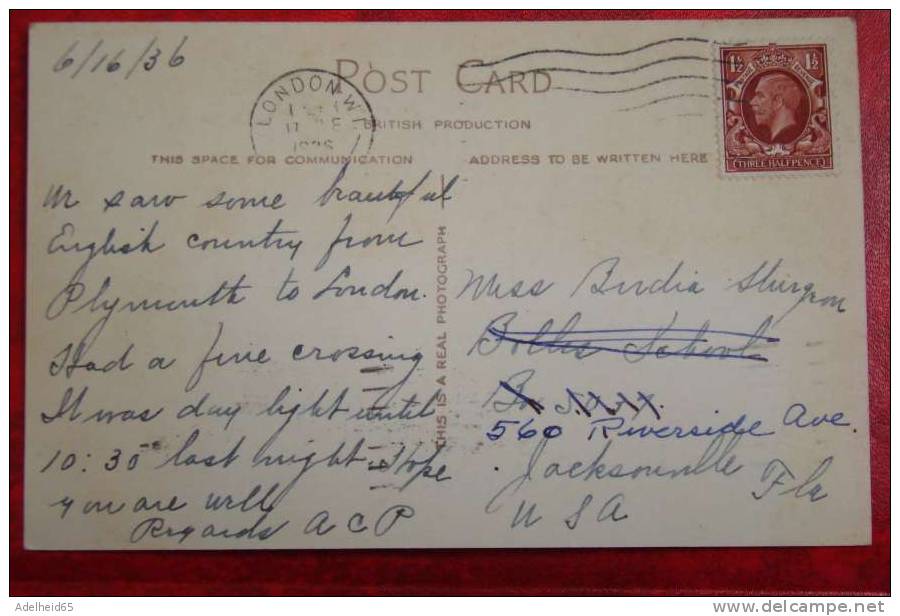 6/16/36
POST CARD
BRITISH PRODUCTION
THIS SPACE FOR COMMUNICATION
ADDRESS TO BE WRITTEN HERE
LONDON.W.1.
1936
1½ 1½
THREE HALFPENCE
THIS IS A REAL PHOTOGRAPH
We saw some beautiful
English country from
Plymouth to London.
Had a fine crossing
It was day light until
10:30 last night. I hope
you are well
Regards A C P
Miss Birdia Sturgeon
Bolles School
560 Riverside Ave.
Jacksonville
Fla
U S A
Adelheid65
www.delcampe.net